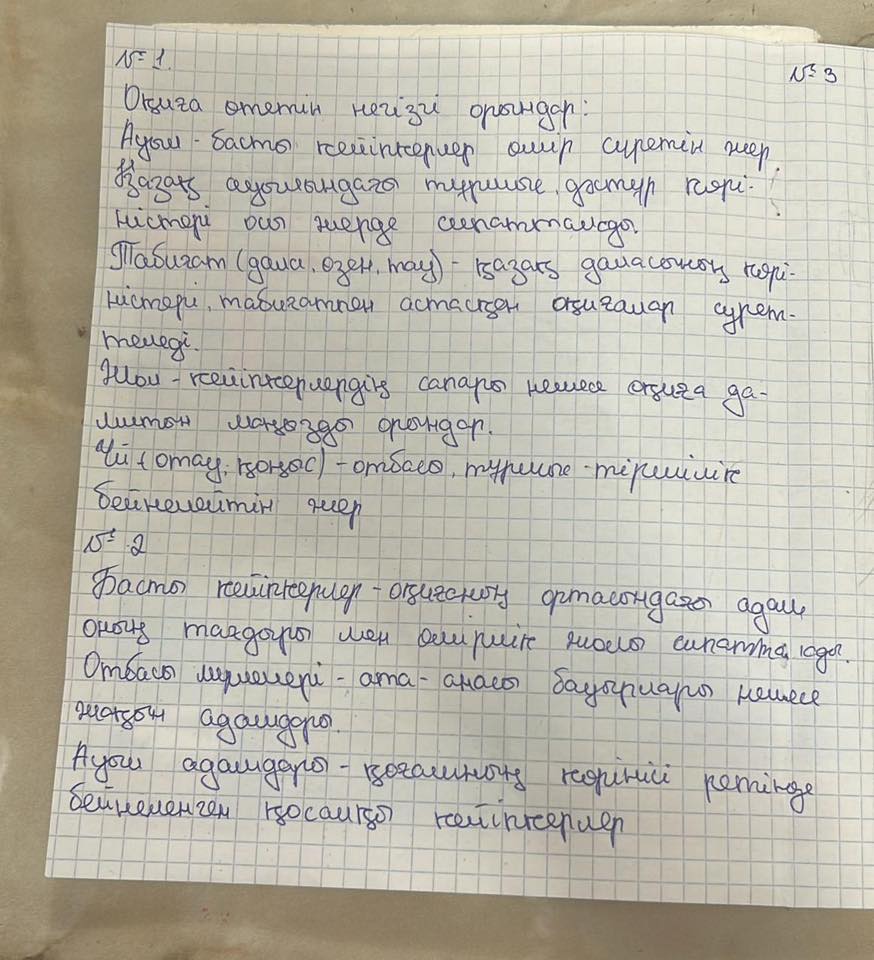 № 1.
№ 3
Оқиға өтетін негізгі орындар:
Ауыл - басты кейіпкерлер өмір сүретін жер
Қазақ ауылындағы тұрмыс, дәстүр көрі-
ністері осы жерде сипатталады.
Табиғат (дала, өзен, тау) - қазақ даласының көрі-
ністері, табиғатпен астасқан оқиғалар сурет-
теледі.
Жол - кейіпкерлердің сапары немесе оқиға да-
митын маңызды орындар.
Үй (отау, қоныс) - отбасы, тұрмыс-тіршілік
бейнелейтін жер
№ 2
Басты кейіпкерлер - оқиғаның ортасындағы адам
оның тағдыры мен өмірлік жолы сипатталады.
Отбасы мүшелері - ата-анасы бауырлары немесе
жақын адамдары.
Ауыл адамдары - қоғамның көрінісі ретінде
бейнеленген қосалқы кейіпкерлер